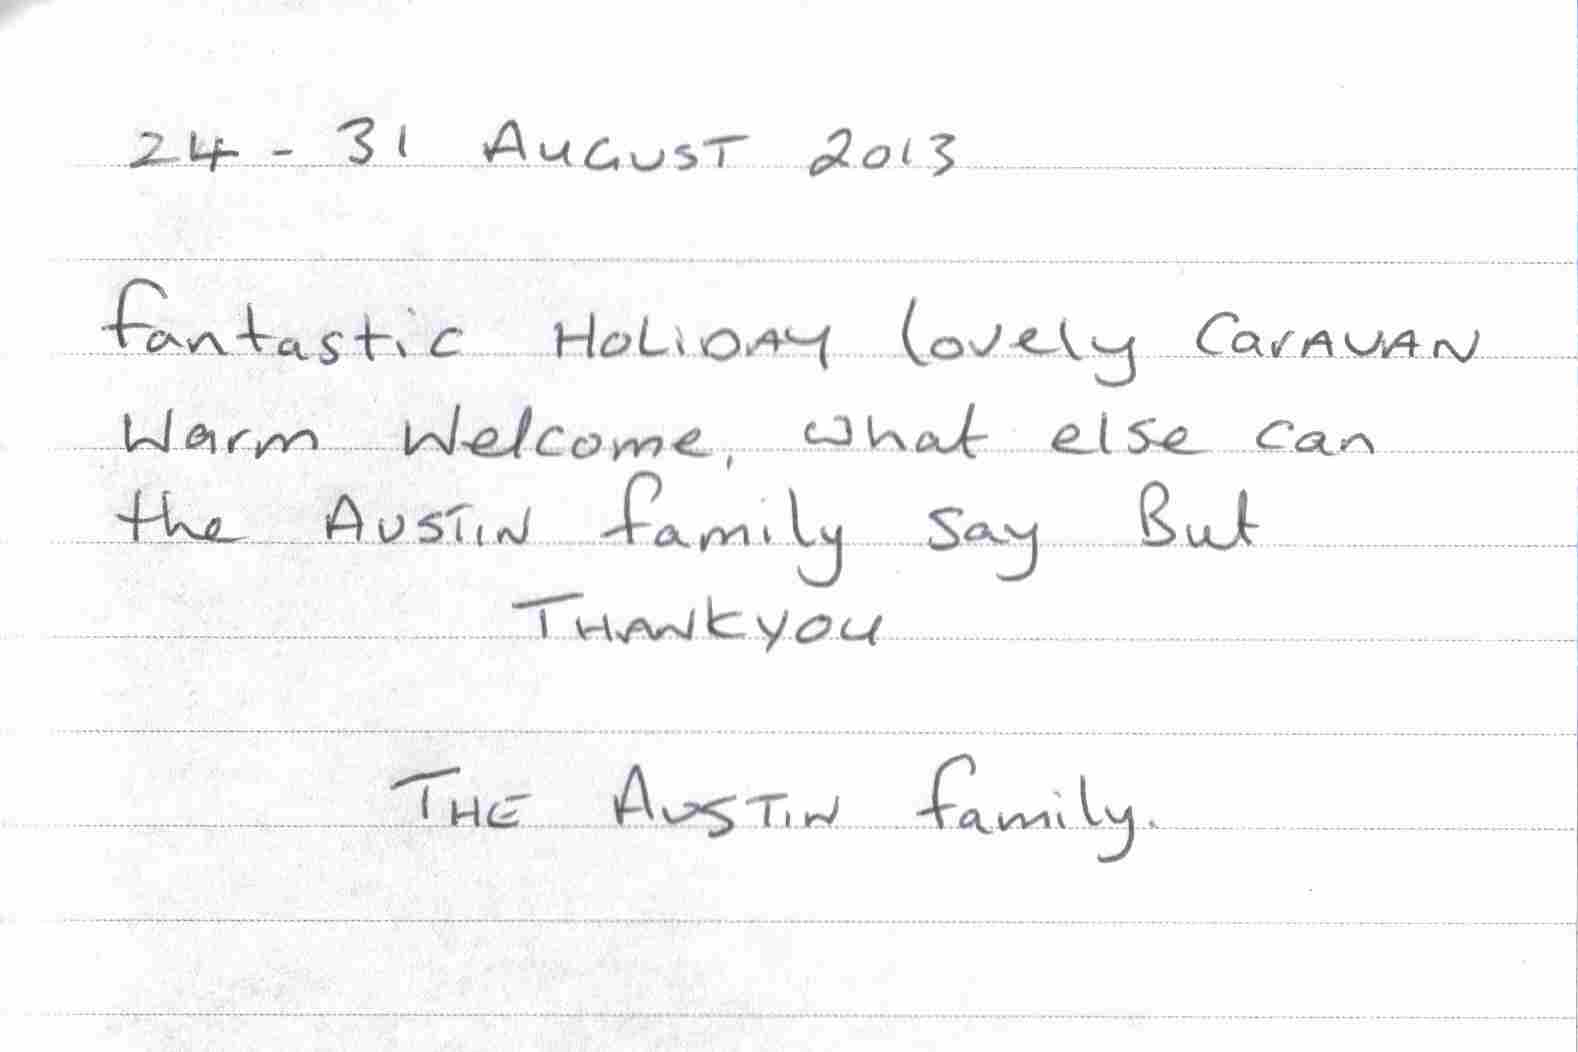 24 - 31 AUGUST 2013
fantastic HOLiDAY lovely CarAVAN
Warm Welcome, what else can
the AUSTiN family say But
THANKYOU
THE AUSTiN family.